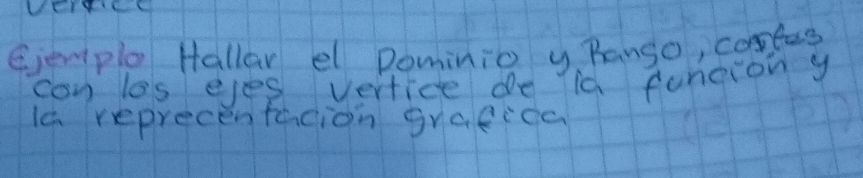 Vertice
Ejemplo Hallar el Dominio y Rango, cortes
con los ejes vertice de la función y
la reprecentación grafica